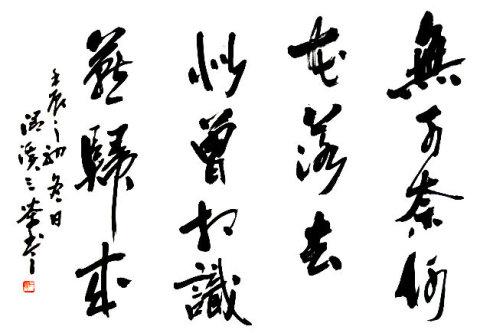 無可奈何
花落去
似曾相識
燕歸來
壬辰之初冬日
溪三